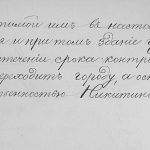 тимой имъ въ настоя
я и притомъ зданіе
стеченіи срока контр
ереходитъ городу, а ост
венностью Никитина